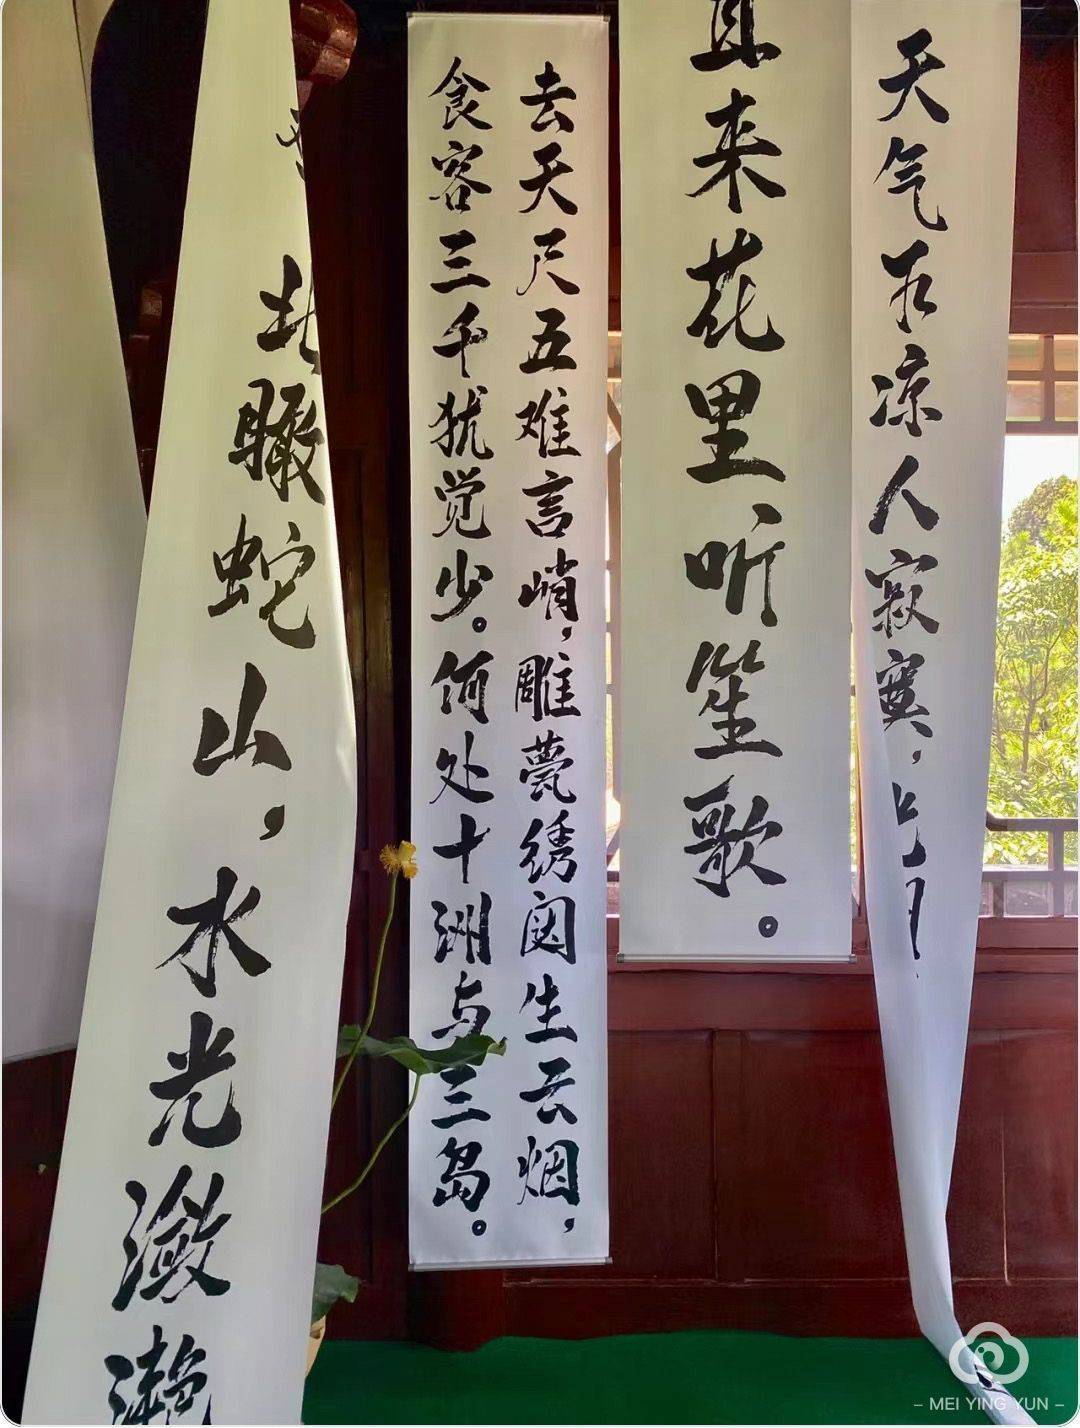 天气乍凉人寂寞，
且来花里听笙歌。
去天尺五难言峭，雕甍绣闼生云烟，
食客三千犹觉少。何处十洲与三岛。
北瞰蛇山，水光潋滟
MEI YING YUN